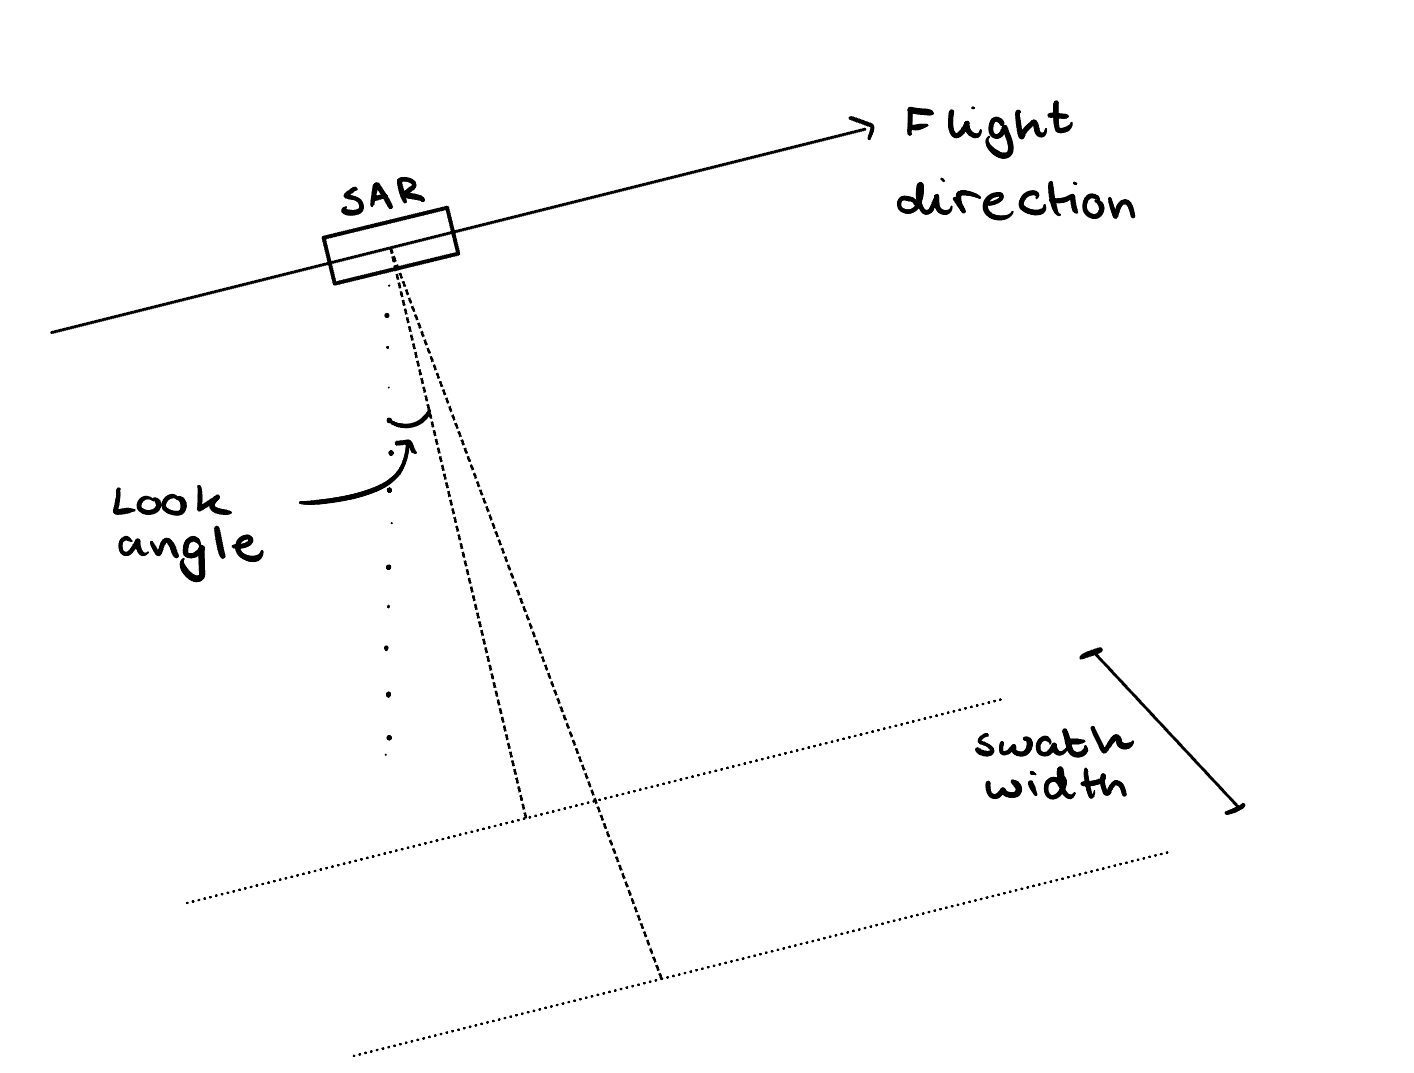 SAR
Flight
direction
Look
angle
swath
width